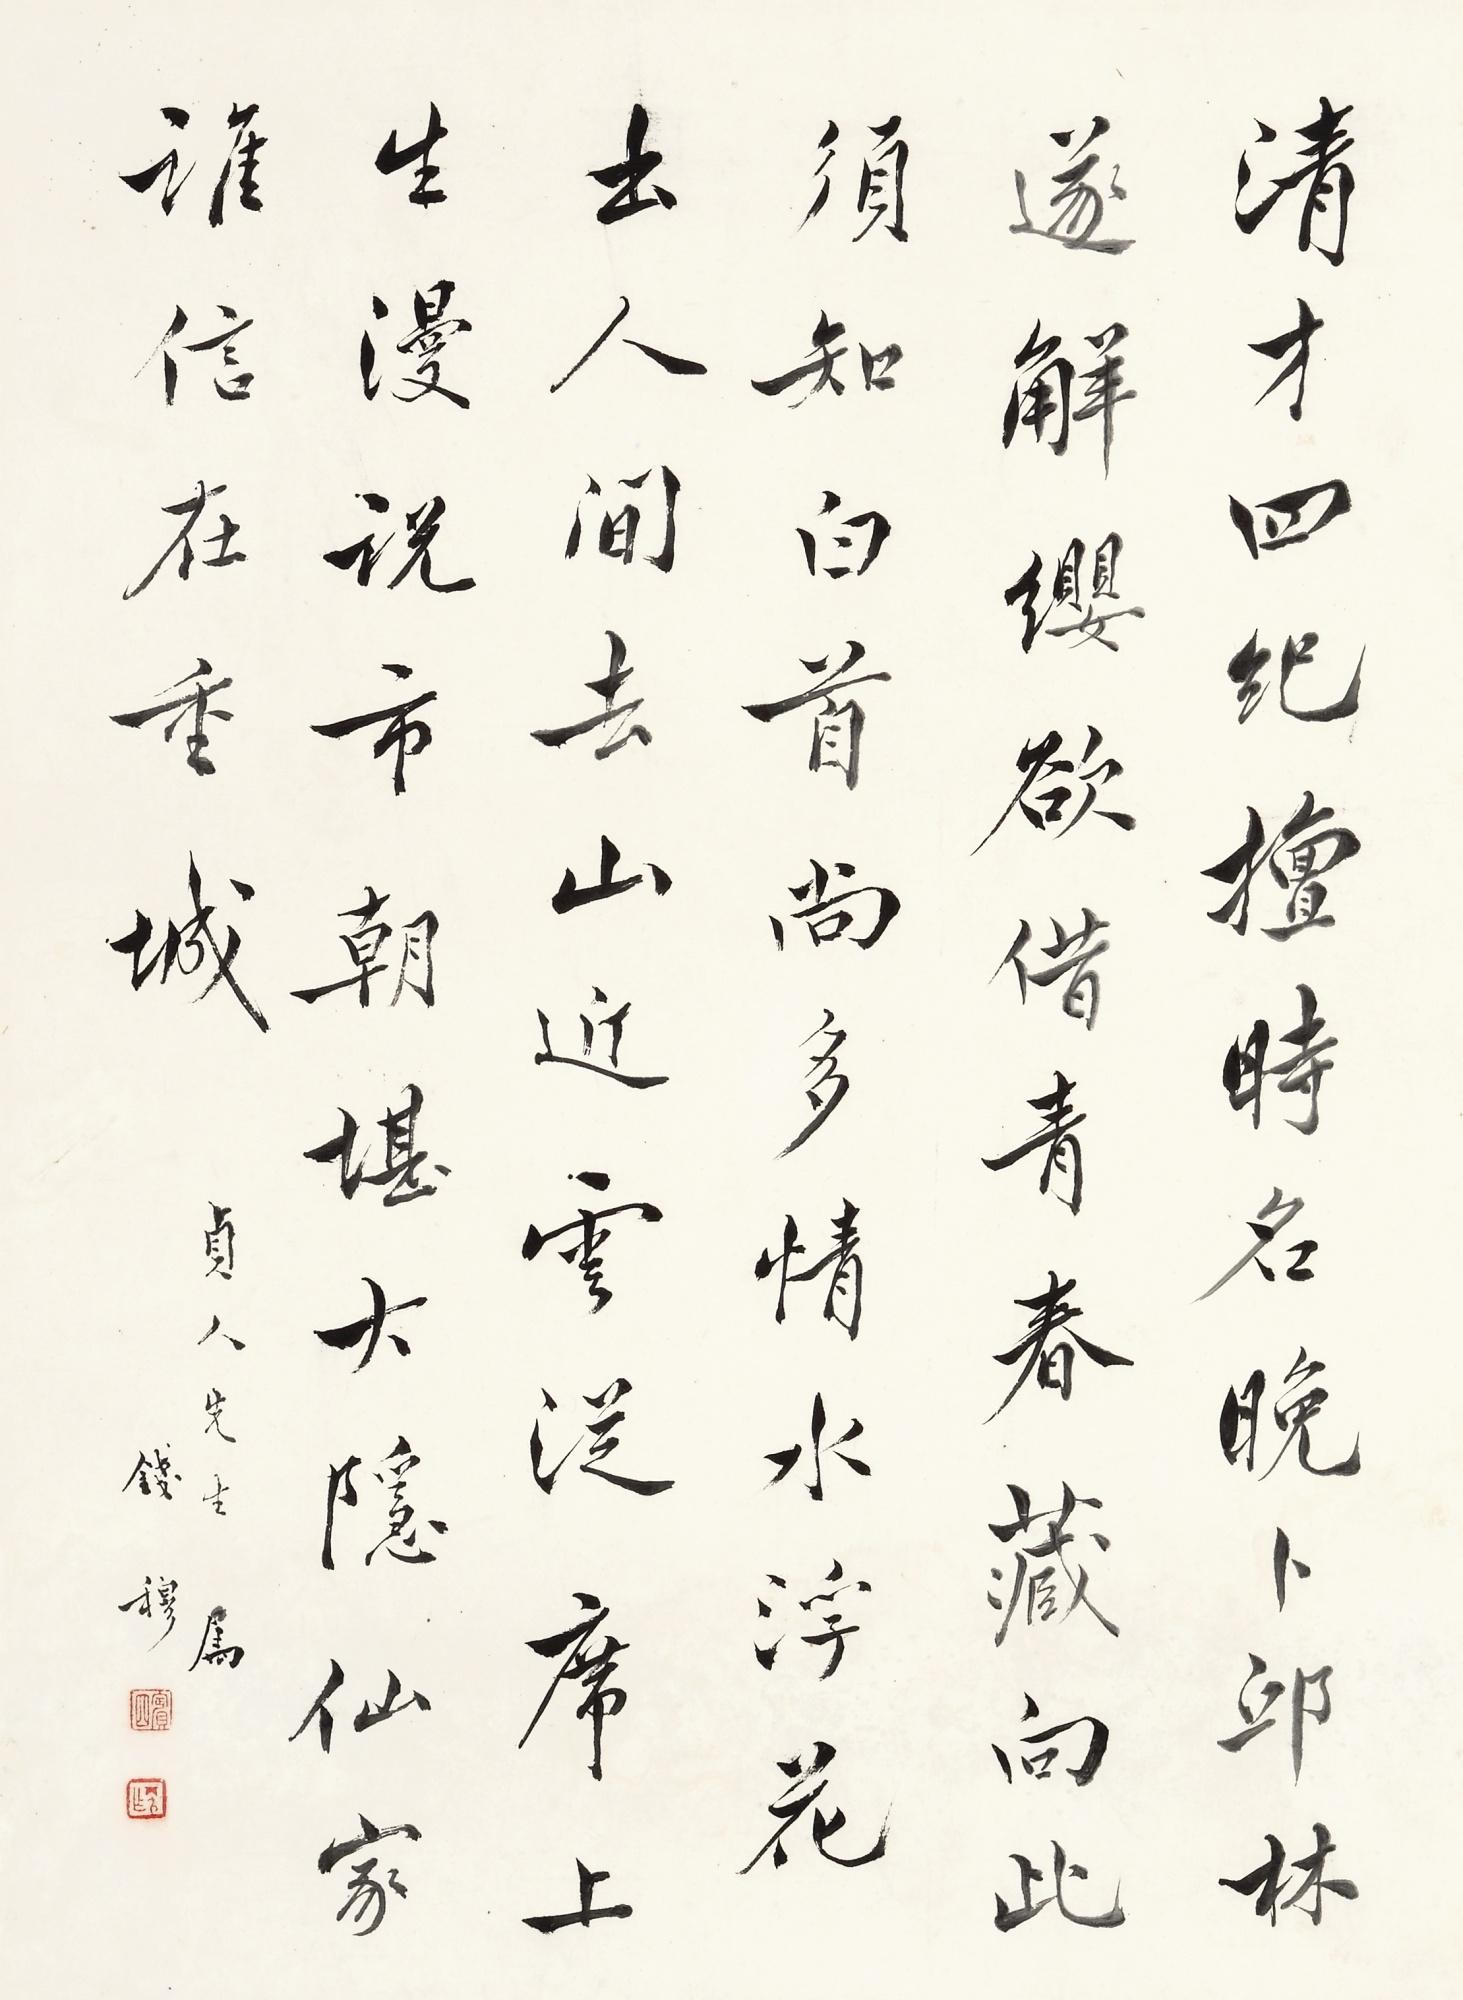 清才四紀擅時名晚卜邱林
遂解纓欲借青春藏向此
須知白首尚多情水浮花
出人間去山近雲從席上
生漫説市朝堪大隱仙家
誰信在重城
貞人先生屬
錢穆